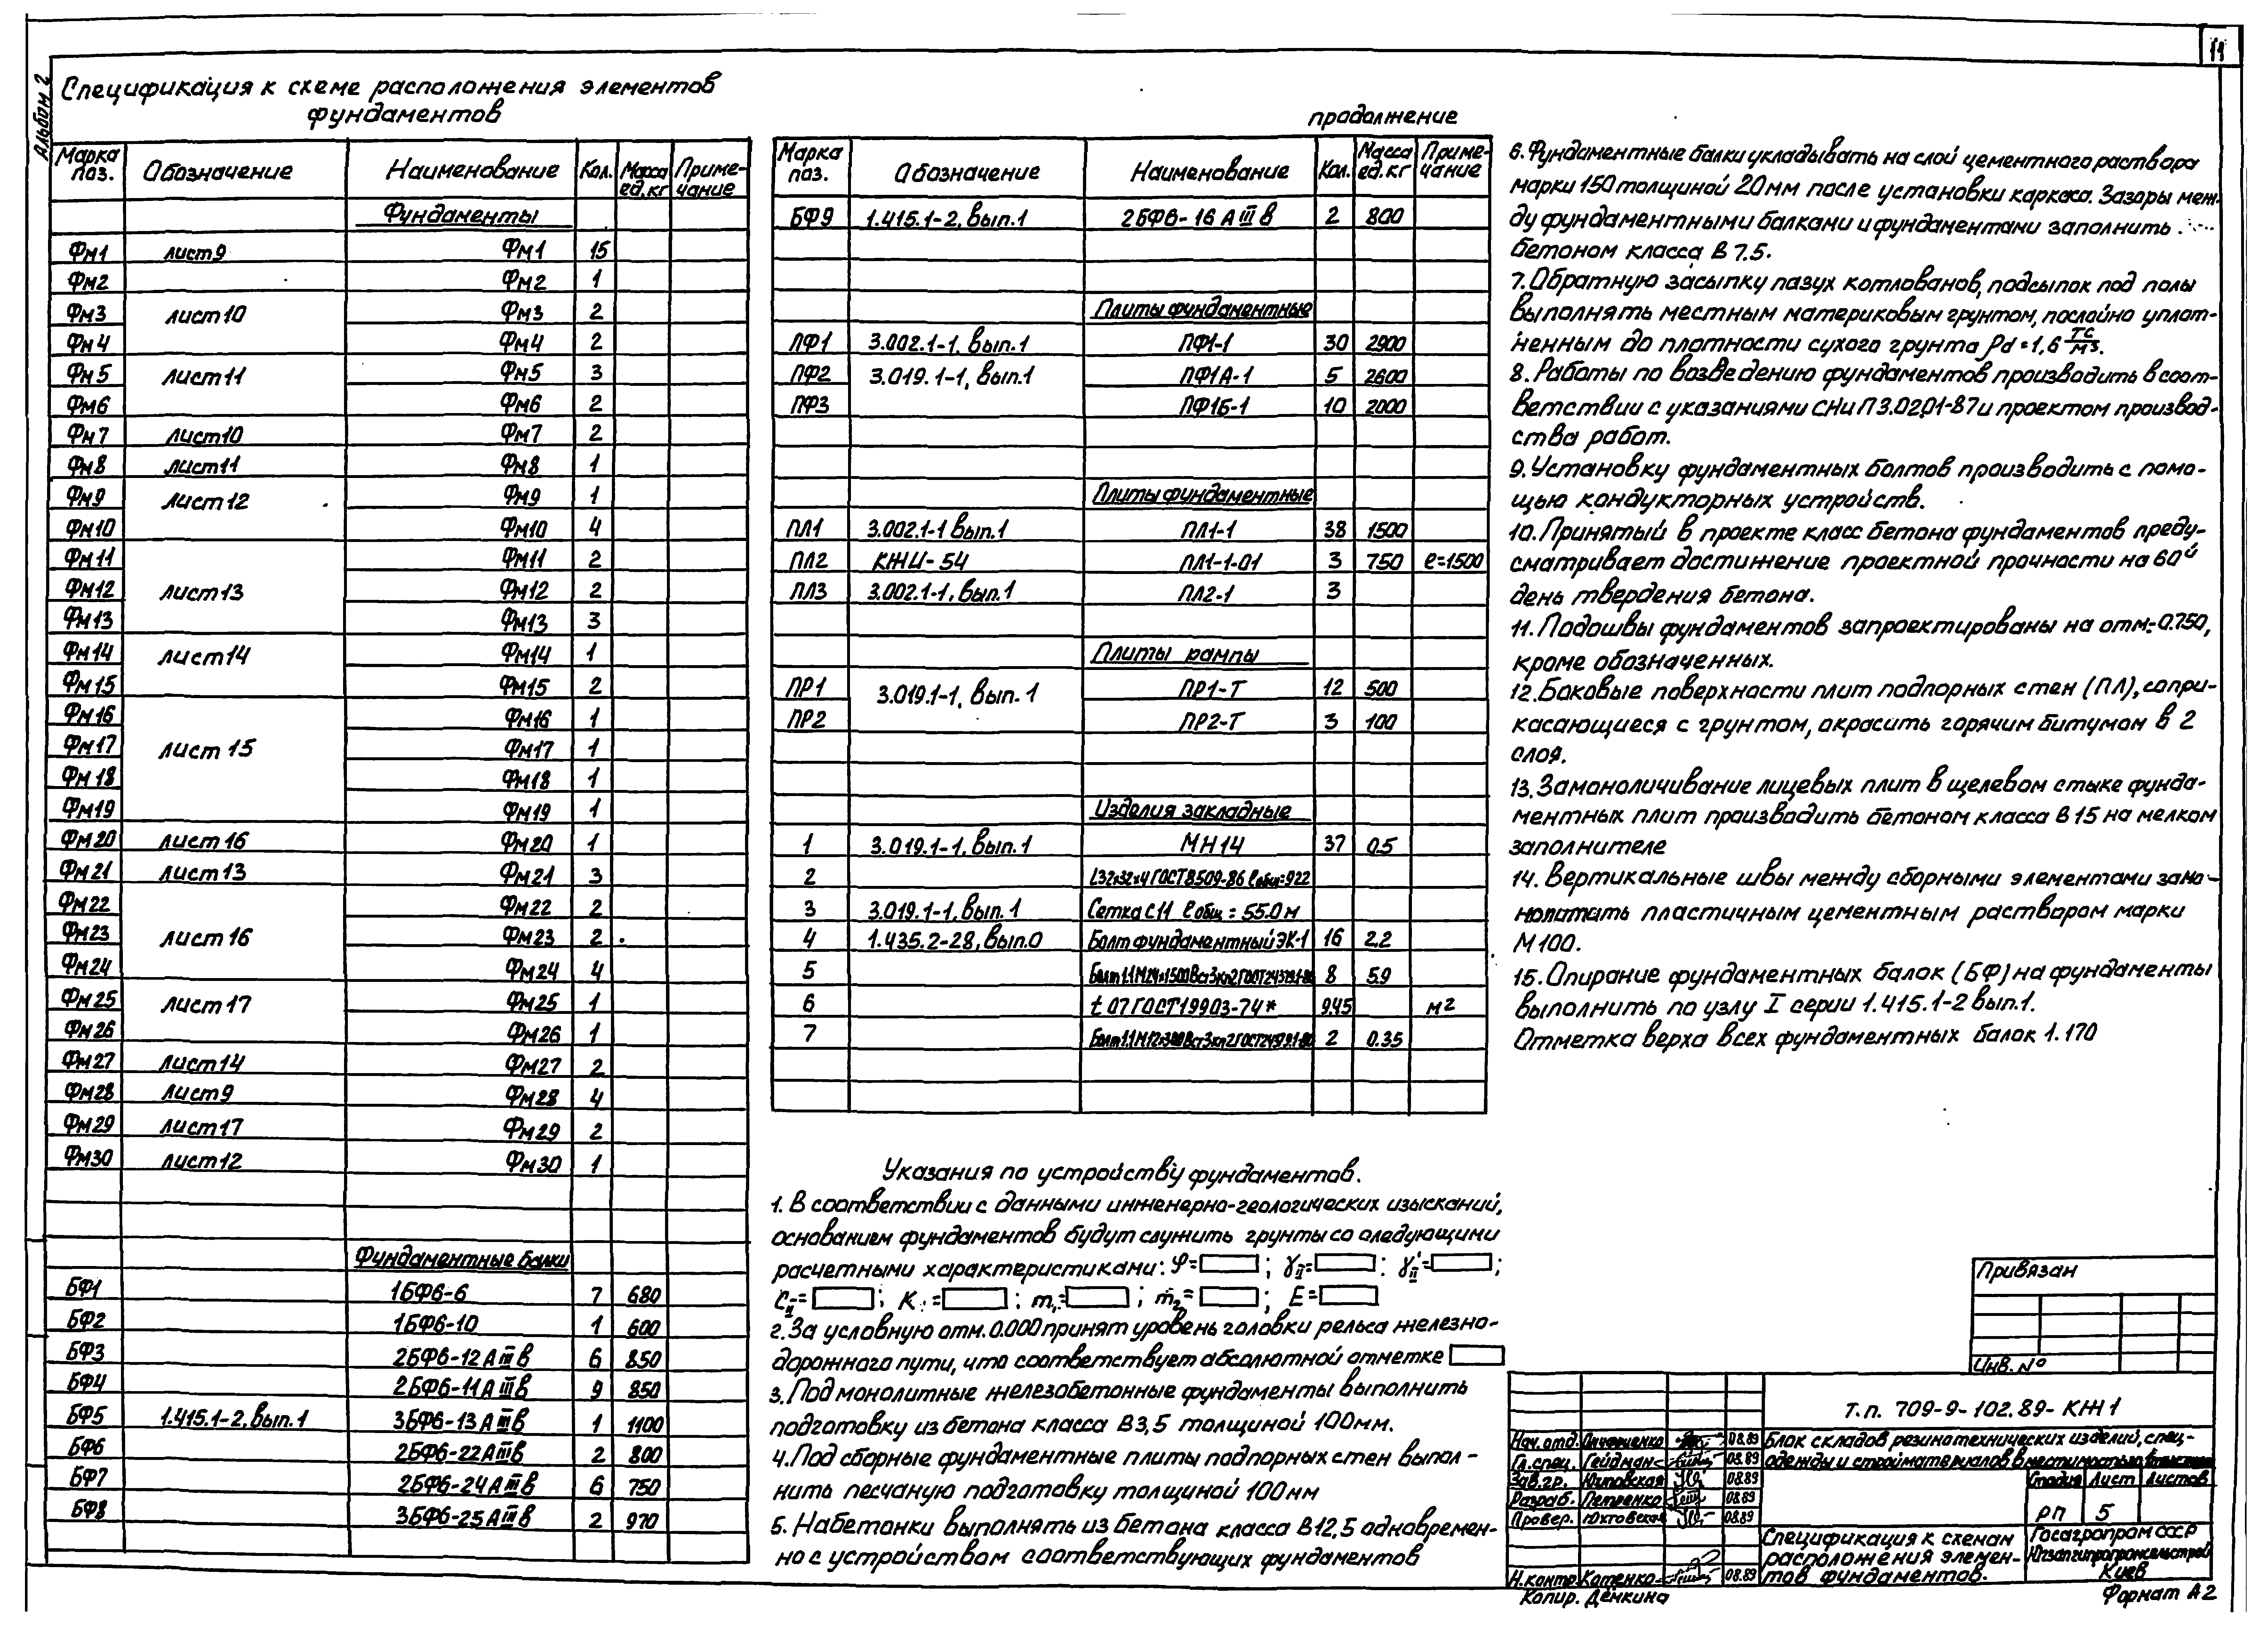 11
Альбом 2
Спецификация к схеме расположения элементов
фундаментов
Марка поз. Обозначение Наименование Кол. Масса ед.кг Примечание
Фундаменты
Фм1 лист9 Фм1 15
Фм2 Фм2 1
Фм3 лист10 Фм3 2
Фм4 Фм4 2
Фм5 лист11 Фм5 3
Фм6 Фм6 2
Фм7 лист10 Фм7 2
Фм8 лист11 Фм8 1
Фм9 лист12 Фм9 1
Фм10 Фм10 4
Фм11 Фм11 2
Фм12 лист13 Фм12 2
Фм13 Фм13 3
Фм14 лист14 Фм14 1
Фм15 Фм15 2
Фм16 Фм16 1
Фм17 лист 15 Фм17 1
Фм18 Фм18 1
Фм19 Фм19 1
Фм20 лист16 Фм20 1
Фм21 лист13 Фм21 3
Фм22 Фм22 2
Фм23 лист16 Фм23 2
Фм24 Фм24 4
Фм25 лист17 Фм25 1
Фм26 Фм26 1
Фм27 лист14 Фм27 2
Фм28 лист9 Фм28 4
Фм29 лист17 Фм29 2
Фм30 лист12 Фм30 1
Фундаментные балки
БФ1 1БФ6-6 7 680
БФ2 1БФ6-10 1 600
БФ3 2БФ6-12АIIIв 6 850
БФ4 2БФ6-11АIIIв 9 850
БФ5 1.415.1-2. вып.1 3БФ6-13АIIIв 1 1100
БФ6 2БФ6-22АIIIв 2 800
БФ7 2БФ6-24АIIIв 6 750
БФ8 3БФ6-25АIIIв 2 970
продолжение
Марка поз. Обозначение Наименование Кол. Масса ед.кг Примечание
БФ9 1.415.1-2. вып.1 2БФ6-16АIIIв 2 800
Плиты фундаментные
ПФ1 3.002.1-1. вып.1 ПФ1-1 30 2900
ПФ2 3.019.1-1, вып.1 ПФ1А-1 5 2600
ПФ3 ПФ1Б-1 10 2000
Плиты фундаментные
ПЛ1 3.002.1-1 вып.1 ПЛ1-1 38 1500
ПЛ2 КЖИ-54 ПЛ1-1-01 3 750 ℓ=1500
ПЛ3 3.002.1-1. вып.1 ПЛ2-1 3
Плиты рампы
ПР1 3.019.1-1, вып.1 ПР1-Т 12 500
ПР2 ПР2-Т 3 100
Изделия закладные
1 3.019.1-1. вып.1 МН14 37 0.5
2 L32х32х4 ГОСТ8509-86 ℓобщ=922
3 3.019.1-1. вып.1 Сетка С11 ℓобщ=55.0м
4 1.435.2-28, вып.0 Болт фундаментный ЭК-1 16 2.2
5 Болт1.1М24х1500ВСт3кп2ГОСТ24379.1-80 8 5.9
6 t 07 ГОСТ19903-74* 9.45 м2
7 Болт1.1М12х300ВСт3кп2ГОСТ24379.1-80 2 0.35
Указания по устройству фундаментов.
1. В соответствии с данными инженерно-геологических изысканий,
основанием фундаментов будут служить грунты со следующими
расчетными характеристиками: φ= ; γII= ; γ'II= ;
CII= ; K = ; m1= ; m2= ; E=
2. За условную отм. 0.000 принят уровень головки рельса железно-
дорожного пути, что соответствует абсолютной отметке
3. Под монолитные железобетонные фундаменты выполнить
подготовку из бетона класса В3,5 толщиной 100мм.
4. Под сборные фундаментные плиты подпорных стен выпол-
нить песчаную подготовку толщиной 100мм
5. Набетонки выполнять из бетона класса В12,5 одновремен-
но с устройством соответствующих фундаментов
6. Фундаментные балки укладывать на слой цементного раствора
марки 150 толщиной 20мм после установки каркаса. Зазоры меж-
ду фундаментными балками и фундаментами заполнить
бетоном класса В 7.5.
7. Обратную засыпку пазух котлованов, подсыпок под полы
выполнять местным материковым грунтом, послойно уплот-
ненным до плотности сухого грунта ρd=1,6 тс/м3.
8. Работы по возведению фундаментов производить в соот-
ветствии с указаниями СНиП 3.02.01-87 и проектом производ-
ства работ.
9. Установку фундаментных болтов производить с помо-
щью кондукторных устройств.
10. Принятый в проекте класс бетона фундаментов преду-
сматривает достижение проектной прочности на 60й
день твердения бетона.
11. Подошвы фундаментов запроектированы на отм.-0.750,
кроме обозначенных.
12. Боковые поверхности плит подпорных стен (ПЛ), сопри-
касающиеся с грунтом, окрасить горячим битумом в 2
слоя.
13. Замоноличивание лицевых плит в щелевом стыке фунда-
ментных плит производить бетоном класса В15 на мелком
заполнителе
14. Вертикальные швы между сборными элементами замо-
нолитить пластичным цементным раствором марки
М100.
15. Опирание фундаментных балок (БФ) на фундаменты
выполнить по узлу I серии 1.415.1-2 вып.1.
Отметка верха всех фундаментных балок 1.170
Привязан
Инв. №
Т.п. 709-9-102.89-КЖ1
Нач. отд. 08.89
Гл. спец. Гейдман 08.89
Зав. гр. Юхтовская 08.89
Разраб. Петренко 08.89
Провер. Юхтовская 08.89
Н. контр. Котенко 08.89
Блок складов резинотехнических изделий, спец-
одежды и стройматериалов вместимостью
Стадия Лист Листов
РП 5
Спецификация к схемам
расположения элемен-
тов фундаментов.
Госагропром СССР
Киев
Копир. Дёмкина
Формат А2